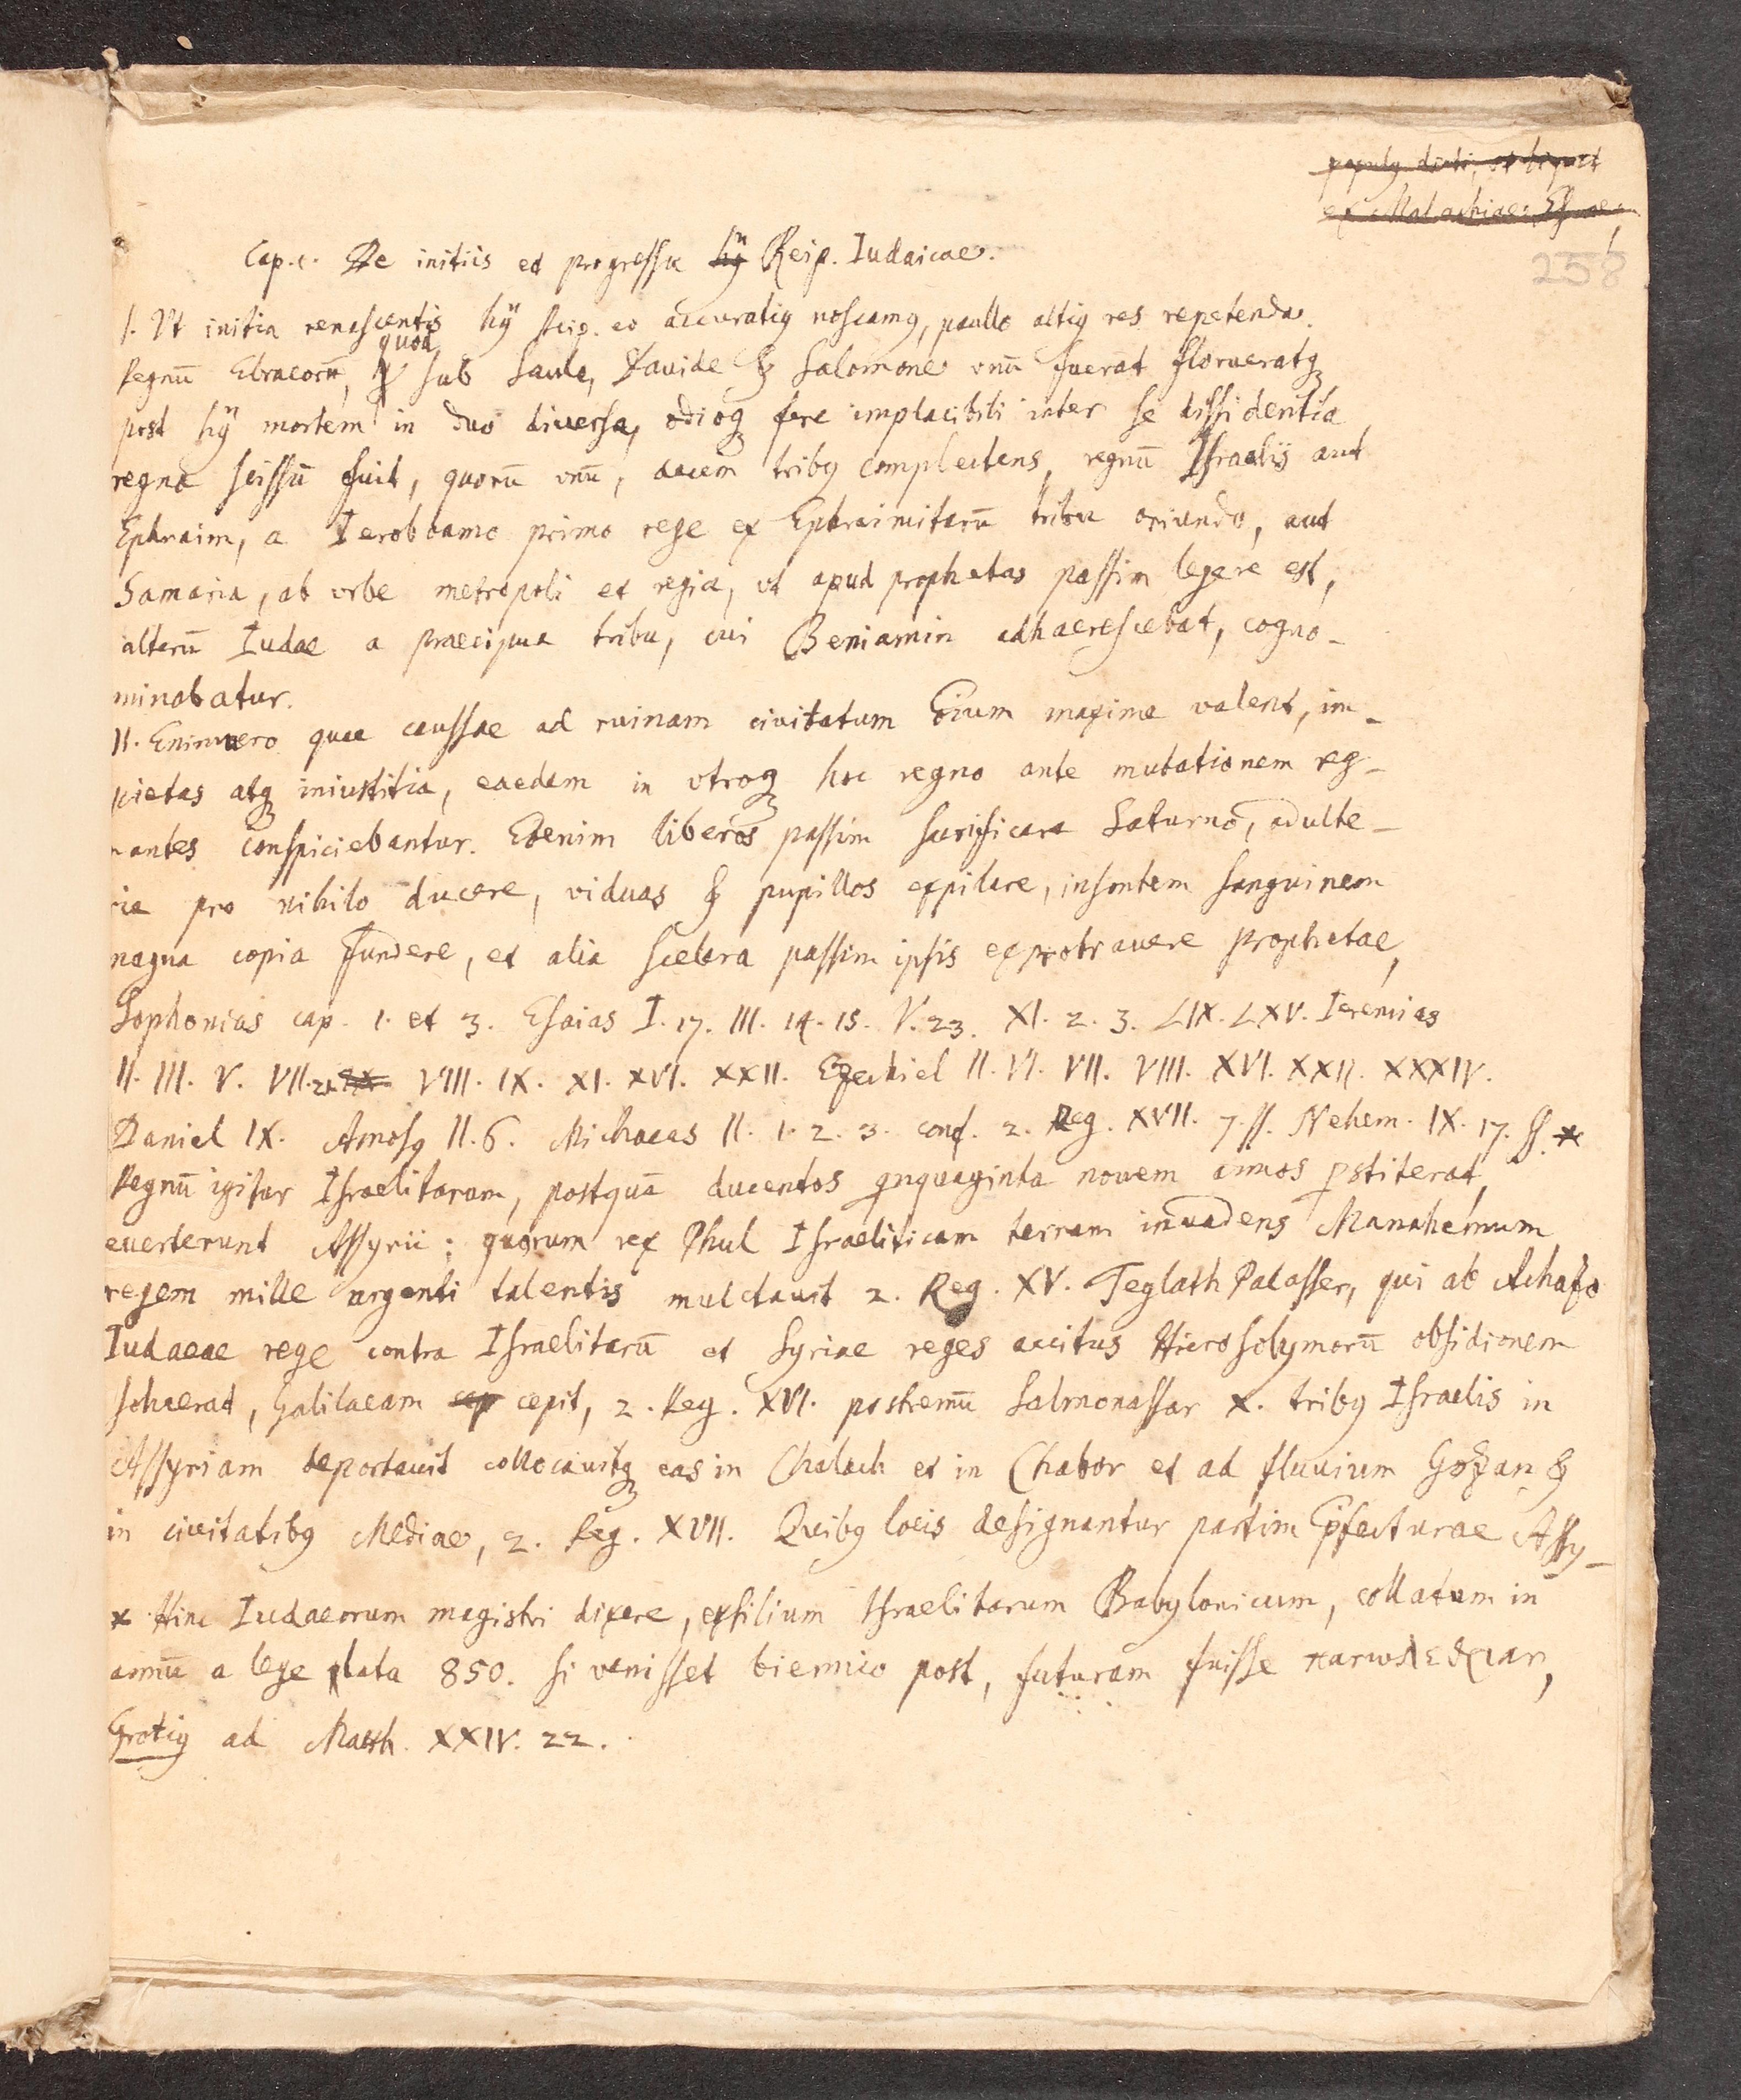 populq dicti, ut liquet
ex Malachiae, Esrae,
258
Cap. 1. De initiis et progressu hq hÿ Reip. Iudaicae.
I. Vt initia renascentis hÿ Reip. eo accuratiq noscamq, paullo altiq res repetenda.
quod
Regnū Ebraeorū, sub Saule, Dauide & Salomone vnū fuerat florueratq
post hÿ mortem in duo diuersa, odioq fere implacibili inter se dissidentia
regna scissū fuit, quorū vnū, decem tribq complectens, regnū Israelis aut
Ephraim, a Ieroboamo primo rege ex Ephraimitarū tribu oriundo, aut
Samaria, ab vrbe metropoli et regia, vt apud prophetas passim legere est,
alterū Iudae a praecipua tribu, cui Beniamin adhaerescebat, cogno-
minabatur.
II. Enimuero quae caussae ad ruinam ciuitatum maxime valent, im-
pietas atq iniustitia, eaedem in vtroq hoc regno ante mutationem reg-
nantes conspiciebantur. Etenim liberos passim sacrificare Saturno, adulte-
ria pro nihilo ducere, viduas & pupillos expilare, insontem sanguinem
magna copia fundere, et alia scelera passim ipsis exprobrauere prophetae,
Sophonias cap. 1. et 3. Esaias I. 17. III. 14. 15. V. 23. XI. 2. 3. LIX. LXV. Ieremias
II. III. V. VII. 21. VIII. IX. XI. XVI. XXII. Ezechiel II. VI. VII. VIII. XVI. XXII. XXXIV.
Daniel IX. Amosq II. 6. Michaeas II. 1. 2. 3. conf. 2. Reg. XVII. 7. ss. Nehem. IX. 17. ss. *
Regnū igitur Israelitarum, postquā ducentos qnquaginta nouem annos pstiterat,
euerterunt Assyrii: quorum rex Phul Israeliticam terram inuadens Manahemum
regem mille argenti talentis mulctauit 2. Reg. XV. Teglath Palasser, qui ab Achaso
Iudaeae rege contra Israelitarū et Syriae reges accitus Hierosolymorū obsidionem
soluerat, Galilaeam cap cepit, 2. Reg. XVI. postremū Salmonassar X. tribq Israelis in
Assyriam deportauit collocauitq eas in Chalach et in Chabor et ad fluuium Gozan &
in ciuitatibq Mediae, 2. Reg. XVII. Quibq locis designantur partim pfecturae Assy-
* Hinc Iudaeorum magistri dixere, exsilium Israelitarum Babylonicum, collatum in
annū a lege lata 850. si venisset biennio post, futuram fuisse πανωλεθρίαν,
Grotiq ad Matth. XXIV. 22.